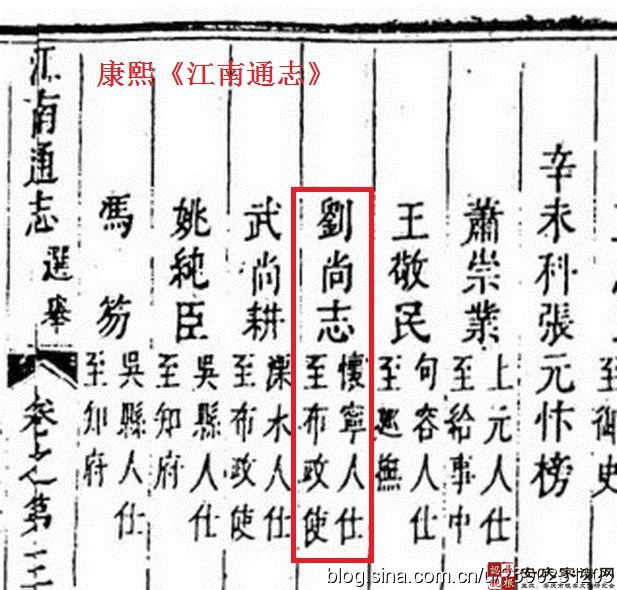 康熙《江南通志》
至御史
辛未科張元忭榜
蕭崇業 上元人仕
至給事中
王敬民 句容人仕
至巡撫
劉尚志 懷寧人仕
至布政使
武尚耕 溧水人仕
至布政使
姚純臣 吳縣人仕
至知府
馮笏 吳縣人仕
至知府
江南通志 選舉 卷之第三
blog.sina.com.cn